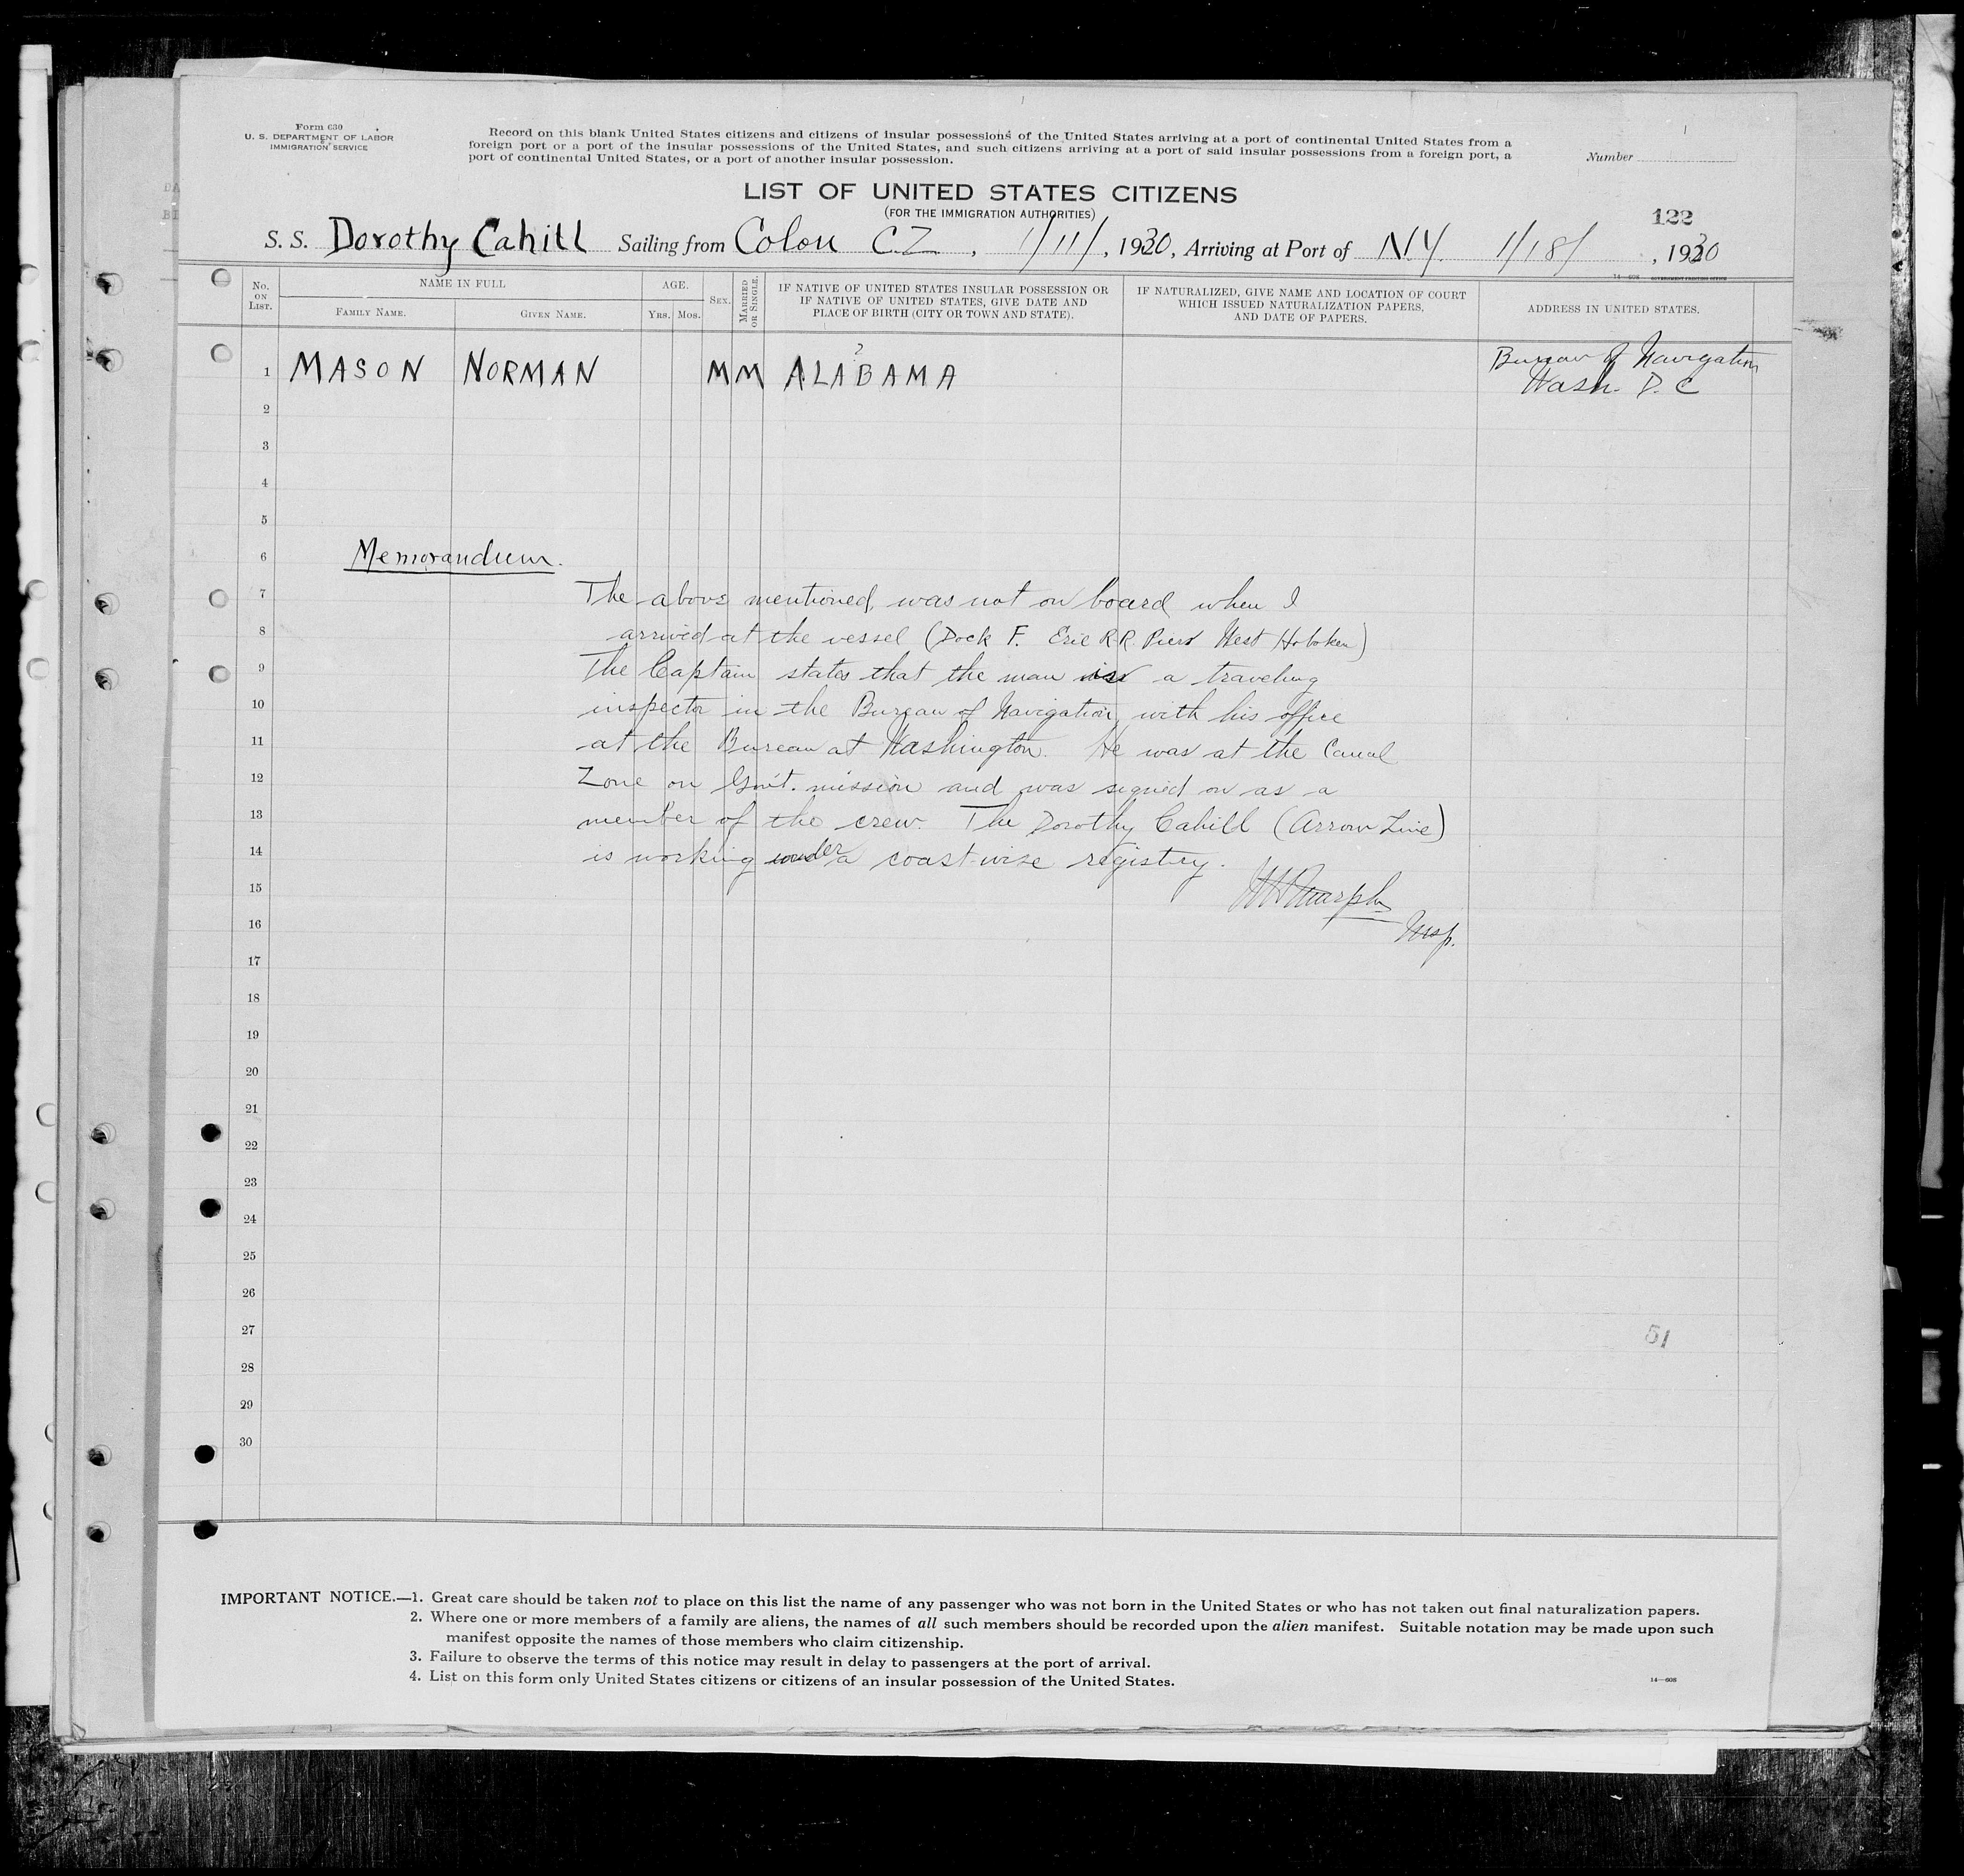 Form 630
U. S. DEPARTMENT OF LABOR
IMMIGRATION SERVICE
Record on this blank United States citizens and citizens of insular possessions of the United States arriving at a port of continental United States from a
foreign port or a port of the insular possessions of the United States, and such citizens arriving at a port of said insular possessions from a foreign port, a
port of continental United States, or a port of another insular possession.
Number
LIST OF UNITED STATES CITIZENS
(FOR THE IMMIGRATION AUTHORITIES)
122
S. S. Dorothy Cahill Sailing from Colon C.Z., 1/11/, 1930, Arriving at Port of N.Y. 1/18/, 1930
No. ON LIST.
NAME IN FULL
FAMILY NAME.
GIVEN NAME.
AGE.
YRS.
MOS.
SEX.
MARRIED OR SINGLE.
IF NATIVE OF UNITED STATES INSULAR POSSESSION OR
IF NATIVE OF UNITED STATES, GIVE DATE AND
PLACE OF BIRTH (CITY OR TOWN AND STATE).
IF NATURALIZED, GIVE NAME AND LOCATION OF COURT
WHICH ISSUED NATURALIZATION PAPERS,
AND DATE OF PAPERS.
ADDRESS IN UNITED STATES.
?
1 MASON NORMAN M M ALABAMA Bureau of Navigation
Wash. D. C
2
3
4
5
6 Memorandum.
7 The above mentioned, was not on board when I
8 arrived at the vessel (Dock F. Erie R.R. Piers West Hoboken)
9 The Captain states that the man is a traveling
10 inspector in the Bureau of Navigation, with his office
11 at the Bureau at Washington. He was at the Canal
12 Zone on Gov't. mission and was signed on as a
13 member of the crew. The Dorothy Cahill (Arrow Line)
14 is working under a coast-wise registry.
15
16 Insp.
17
18
19
20
21
22
23
24
25
26
27 51
28
29
30
IMPORTANT NOTICE.—1. Great care should be taken not to place on this list the name of any passenger who was not born in the United States or who has not taken out final naturalization papers.
2. Where one or more members of a family are aliens, the names of all such members should be recorded upon the alien manifest. Suitable notation may be made upon such
manifest opposite the names of those members who claim citizenship.
3. Failure to observe the terms of this notice may result in delay to passengers at the port of arrival.
4. List on this form only United States citizens or citizens of an insular possession of the United States.
14—608